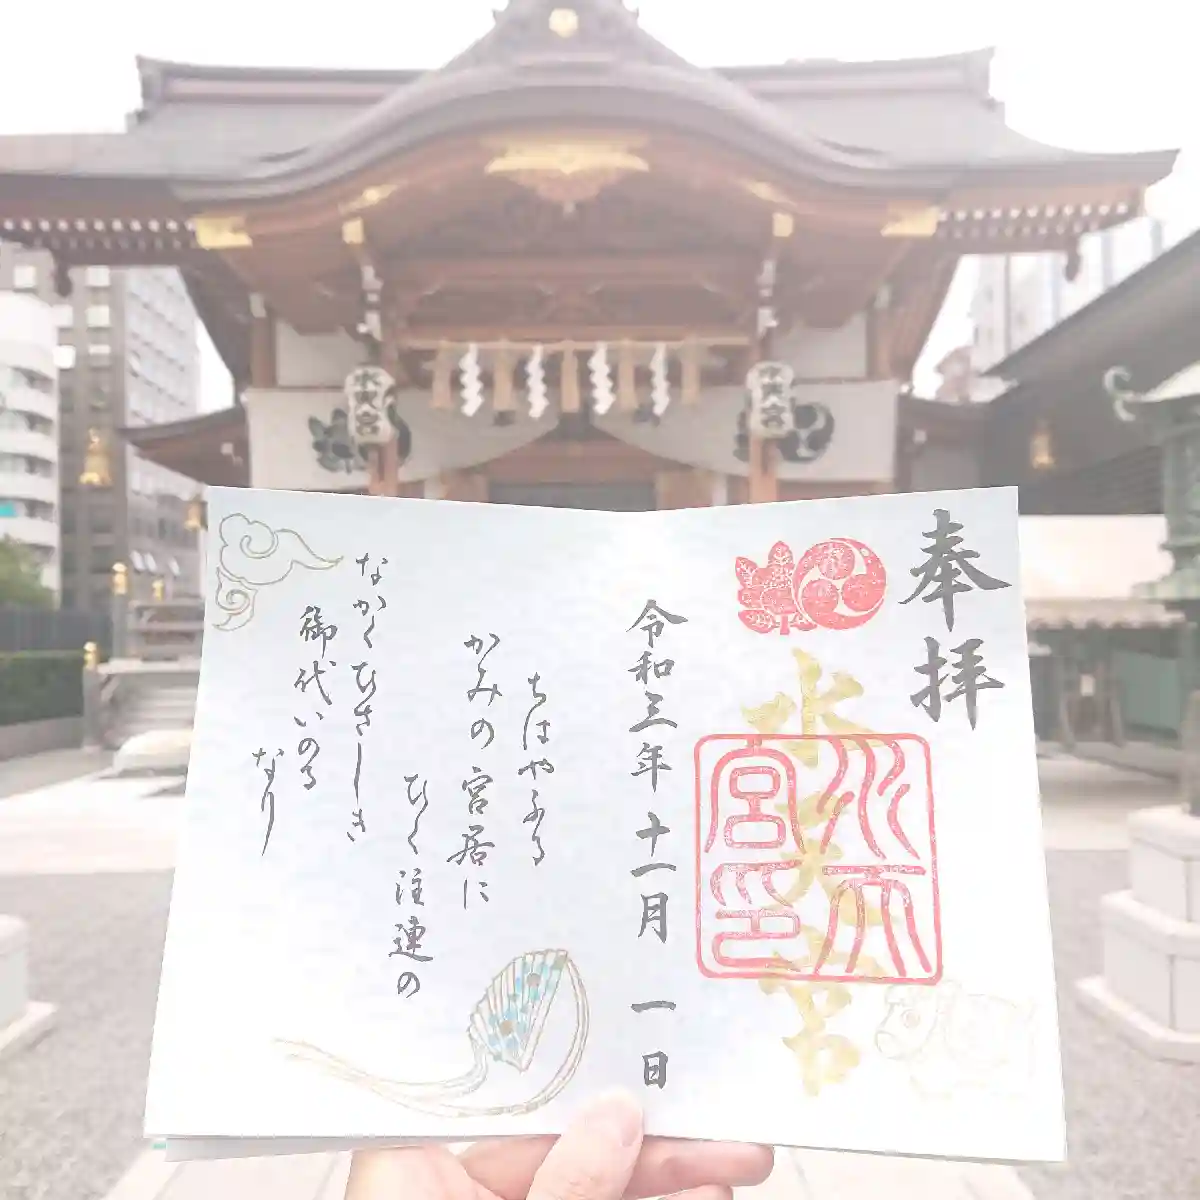 水天宮
水天宮
奉拝
水天宮
水天宮印
令和三年十一月一日
ちはやふる
かみの宮居に
ひく注連の
なかくひさしき
御代いのる
なり